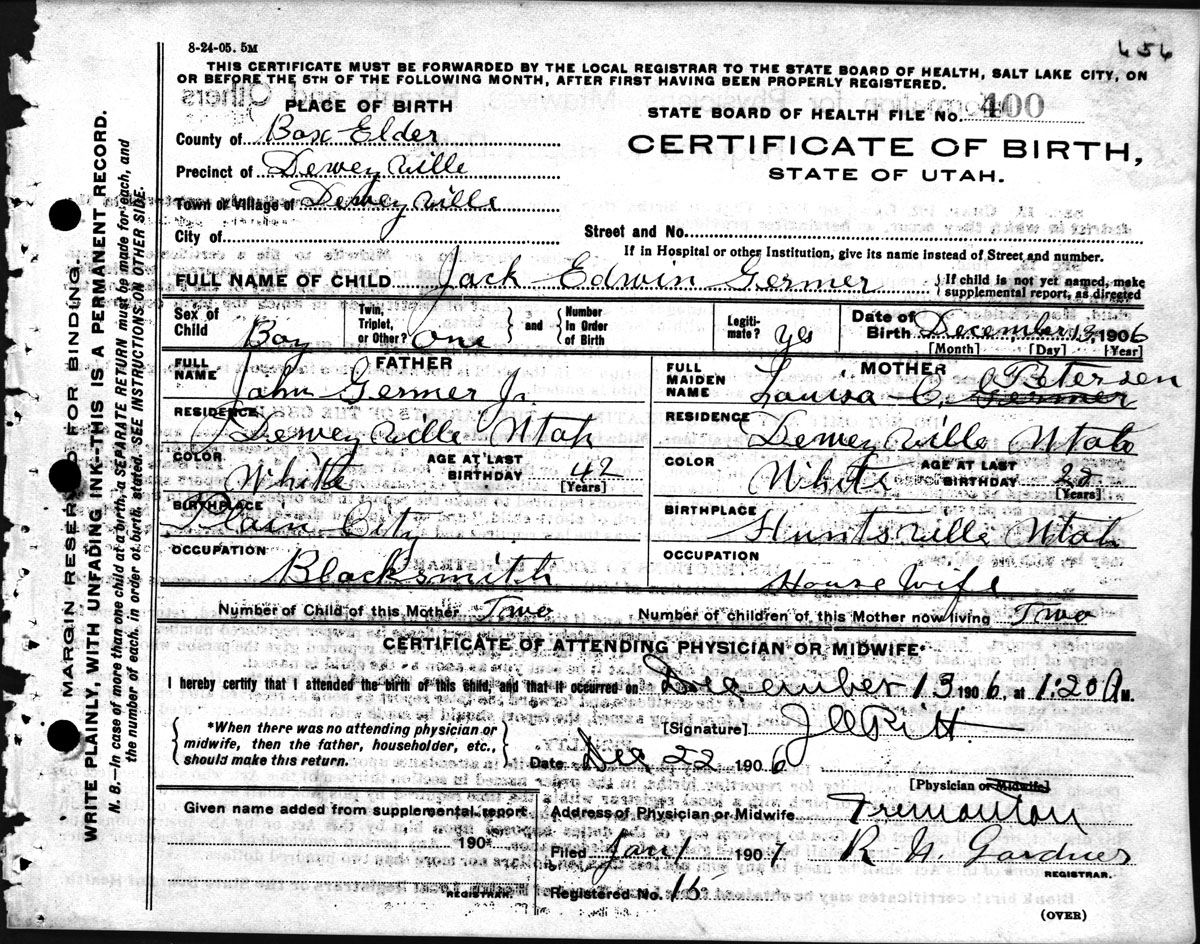 8-24-05. 5M
656
THIS CERTIFICATE MUST BE FORWARDED BY THE LOCAL REGISTRAR TO THE STATE BOARD OF HEALTH, SALT LAKE CITY, ON
OR BEFORE THE 5TH OF THE FOLLOWING MONTH, AFTER FIRST HAVING BEEN PROPERLY REGISTERED.
PLACE OF BIRTH
STATE BOARD OF HEALTH FILE No. 400
County of Box Elder
CERTIFICATE OF BIRTH,
Precinct of Deweyville
STATE OF UTAH.
Town or Village of Deweyville
City of Street and No.
If in Hospital or other Institution, give its name instead of Street and number.
FULL NAME OF CHILD Jack Edwin Germer { If child is not yet named, make supplemental report, as directed
Sex of Child Boy Twin, Triplet, or Other? One } and { Number In Order of Birth Legiti-mate? yes Date of Birth December 13, 1906
[Month] [Day] [Year]
FATHER
FULL NAME John Germer Jr.
RESIDENCE Deweyville Utah
COLOR White AGE AT LAST BIRTHDAY 42
[Years]
BIRTHPLACE Plain City
OCCUPATION Blacksmith
MOTHER
FULL MAIDEN NAME Louisa C. Germer Petersen
RESIDENCE Deweyville Utah
COLOR White AGE AT LAST BIRTHDAY 22
[Years]
BIRTHPLACE Huntsville Utah
OCCUPATION House Wife
Number of Child of this Mother Two Number of children of this Mother now living Two
CERTIFICATE OF ATTENDING PHYSICIAN OR MIDWIFE*
I hereby certify that I attended the birth of this child, and that it occurred on December 13 1906, at 1:20 A M.
{ *When there was no attending physician or midwife, then the father, householder, etc., should make this return. }
[Signature]
Date Dec 22 1906
[Physician or Midwife]
Given name added from supplemental report
190
REGISTRAR.
Address of Physician or Midwife Tremonton
Filed Jan 1 1907 R. H. Gardner
REGISTRAR.
Registered No. 16
(OVER)
MARGIN RESERVED FOR BINDING.
WRITE PLAINLY, WITH UNFADING INK--THIS IS A PERMANENT RECORD.
N. B.—In case of more than one child at a birth, a SEPARATE RETURN must be made for each, and
the number of each, in order of birth, stated. SEE INSTRUCTIONS ON OTHER SIDE.